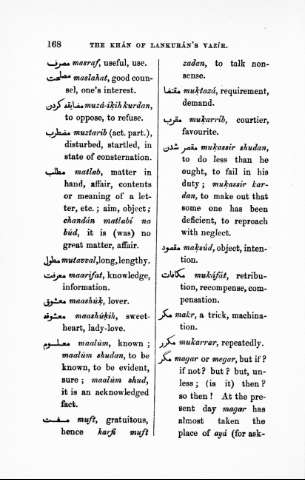 168 THE KHÁN OF LANKURÁN'S VAZÍR.
مصرف masraf, useful, use.
مصلحت maslahat, good coun-
sel, one's interest.
مضایقه کردن muzá-íkih kurdan,
to oppose, to refuse.
مضطرب muztarib (act. part.),
disturbed, startled, in
state of consternation.
مطلب matlab, matter in
hand, affair, contents
or meaning of a let-
ter, etc.; aim, object;
chandán matlabí na
búd, it is (was) no
great matter, affair.
مطول mutavval, long, lengthy.
معرفت maarifat, knowledge,
information.
معشوق maashúḳ, lover.
معشوقه maashúḳih, sweet-
heart, lady-love.
معلوم maalúm, known;
maalúm shudan, to be
known, to be evident,
sure; maalúm shud,
it is an acknowledged
fact.
مفت muft, gratuitous,
hence harfi muft
zadan, to talk non-
sense.
مقتضا muḳtazá, requirement,
demand.
مقرب muḳarrib, courtier,
favourite.
مقصر شدن muḳassir shudan,
to do less than he
ought, to fail in his
duty; muḳassir kar-
dan, to make out that
some one has been
deficient, to reproach
with neglect.
مقصود maḳsúd, object, inten-
tion.
مکافات mukáfát, retribu-
tion, recompense, com-
pensation.
مکر makr, a trick, machina-
tion.
مکرر mukarrar, repeatedly.
مگر magar or megar, but if?
if not? but? but, un-
less; (is it) then?
so then! At the pre-
sent day magar has
almost taken the
place of ayá (for ask-